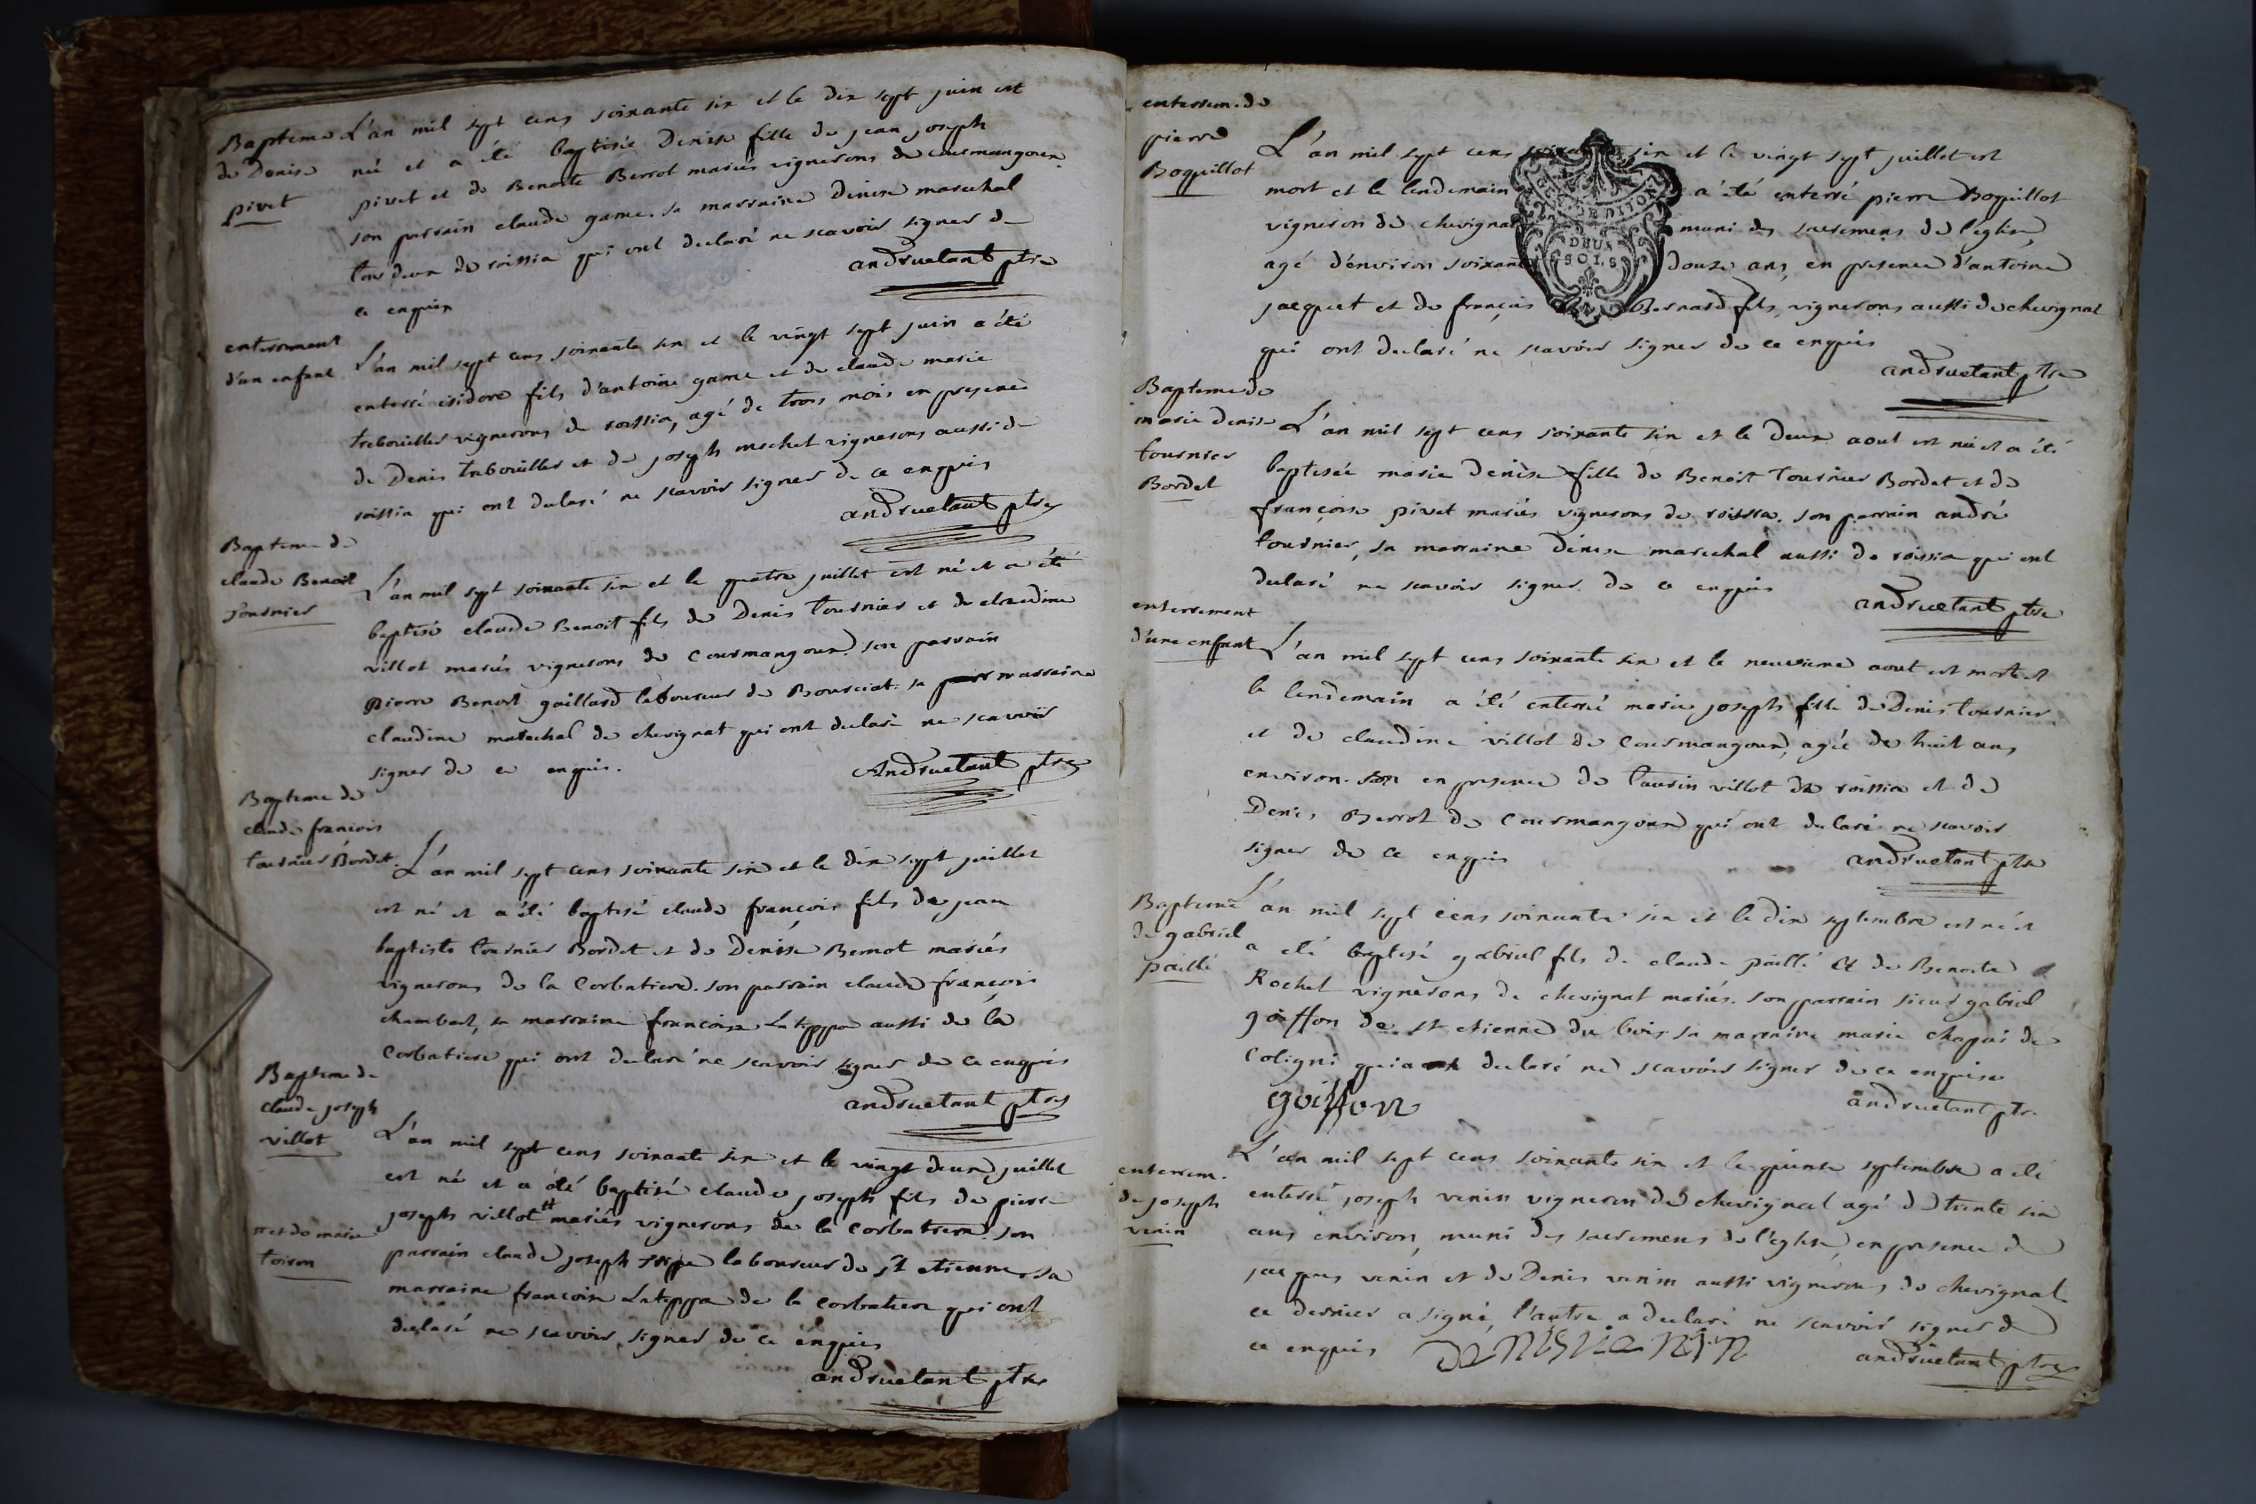 Bapteme
de Denise
pivet
L'an mil sept cens soixante six et le dix sept juin est
née et a été baptisée Denise fille de jean joseph
pivet et de Benoite Berrot mariés vignerons de courmangoux
son parrain claude game. sa marraine Denise marechal
tous deux de roissia qui ont declaré ne scavoir signer de
ce enquis
andruetant ptre
enterrement
d'un enfant
L'an mil sept cens soixante six et le vingt sept juin a été
enterré isidore fils d'antoine game et de claude marie
trebouillet vignerons de roissia, agé de trois mois en presence
de Denis trebouillet et de joseph michel vignerons aussi de
roissia qui ont declaré ne scavoir signer de ce enquis
andruetant ptre
Bapteme de
claude Benoit
tournier
L'an mil sept soixante six et le quatre juillet est né et a été
baptisé claude Benoit fils de Denis tournier et de claudine
villot mariés vignerons de Courmangoux. son parrain
pierre Benoit gaillard laboureur de Boursciat. sa marraine
claudine marechal de chevignat qui ont declaré ne scavoir
signer de ce enquis.
Andruetant ptre
Bapteme de
claude francois
tournier Bordet
L'an mil sept cens soixante six et le dix sept juillet
est né et a été baptisé claude françois fils de jean
baptiste tournier Bordet et de Denise Bernot mariés
vignerons de la Corbatiere. son parrain claude françois
chambard, sa marraine françoise Lateppa aussi de la
Corbatiere qui ont declaré ne scavoir signer de ce enquis
andruetant ptre
Bapteme de
claude joseph
villot
L'an mil sept cens soixante six et le vingt deux juillet
est né et a été baptisé claude joseph fils de pierre
joseph villot # mariés vignerons de la Corbatiere. son
# et de marie
toiron
parrain claude joseph laboureur de st etienne, sa
marraine francoise Lateppa de la Corbatiere qui ont
declaré ne scavoir signer de ce enquis
andruetant ptre
enterrem. de
pierre
Boquillot
GEN. DE DIJON
DEUX
SOLS
L'an mil sept cens soixante six et le vingt sept juillet est
mort et le lendemain a été enterré pierre Boquillot
vigneron de chevignat muni des sacremens de l'eglise,
agé d'environ soixante douze ans, en presence d'antoine
jacquet et de françois Bernard fils, vignerons aussi de chevignat
qui ont declaré ne scavoir signer de ce enquis
andruetant ptre
Bapteme de
marie denise
tournier
Bordet
L'an mil sept cens soixante six et le deux aout est née et a été
baptisée marie denise fille de Benoit tournier Bordet et de
françoise pivet mariés vignerons de roissia. son parrain andré
tournier, sa marraine denise marechal aussi de roissia qui ont
declaré ne scavoir signer de ce enquis
andruetant ptre
enterrement
d'une enfant
L'an mil sept cens soixante six et le neuvieme aout est morte et
le lendemain a été enterrée marie joseph fille de Denis tournier
et de claudine villot de Courmangoux, agée de huit ans
environ. en presence de taurin villot de roissia et de
Denis Berrot de Courmangoux qui ont declaré ne scavoir
signer de ce enquis
andruetant ptre
Bapteme
de gabriel
paillé
L'an mil sept cens soixante six et le dix septembre est né et
a été baptisé gabriel fils de claude paillé et de Benoite
Rochet vignerons de chevignat mariés. son parrain sieur gabriel
goiffon de st etienne du bois sa marraine marie chapai de
Coligni qui a declaré ne scavoir signer de ce enquise
goiffon
andruetant ptre
enterrem.
de joseph
venin
L'an mil sept cens soixante six et le quinze septembre a été
enterré joseph venin vigneron de chevignat agé de trente six
ans environ, muni des sacremens de l'eglise, en presence de
jacques venin et de Denis venin aussi vignerons de chevignat
ce dernier a signé, l'autre a declaré ne scavoir signer de
ce enquis
denis venin
andruetant ptre